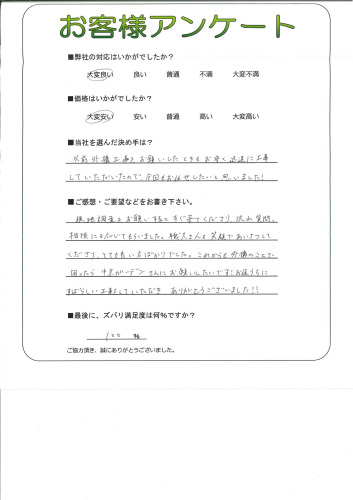 お客様アンケート
■弊社の対応はいかがでしたか?
大変良い 良い 普通 不満 大変不満
■価格はいかがでしたか?
大変安い 安い 普通 高い 大変高い
■当社を選んだ決め手は?
以前外構工事をお願いしたときもお安く迅速に工事
していただいたので、今回もお任せしたいと思いました!
■ご感想・ご要望などをお書き下さい。
現地調査をお願いするとすぐ来てくださり、沢山質問、
相談にものってもらいました。職人さんも笑顔であいさつして
くださり、とても良い方ばかりでした。これからも外構のことで
困ったら ガーデンさんにお願いしたいです!お陰さまに
すばらしい工事をしていただき ありがとうございました!!
■最後に、ズバリ満足度は何%ですか?
100 %
ご協力頂き、誠にありがとうございました。